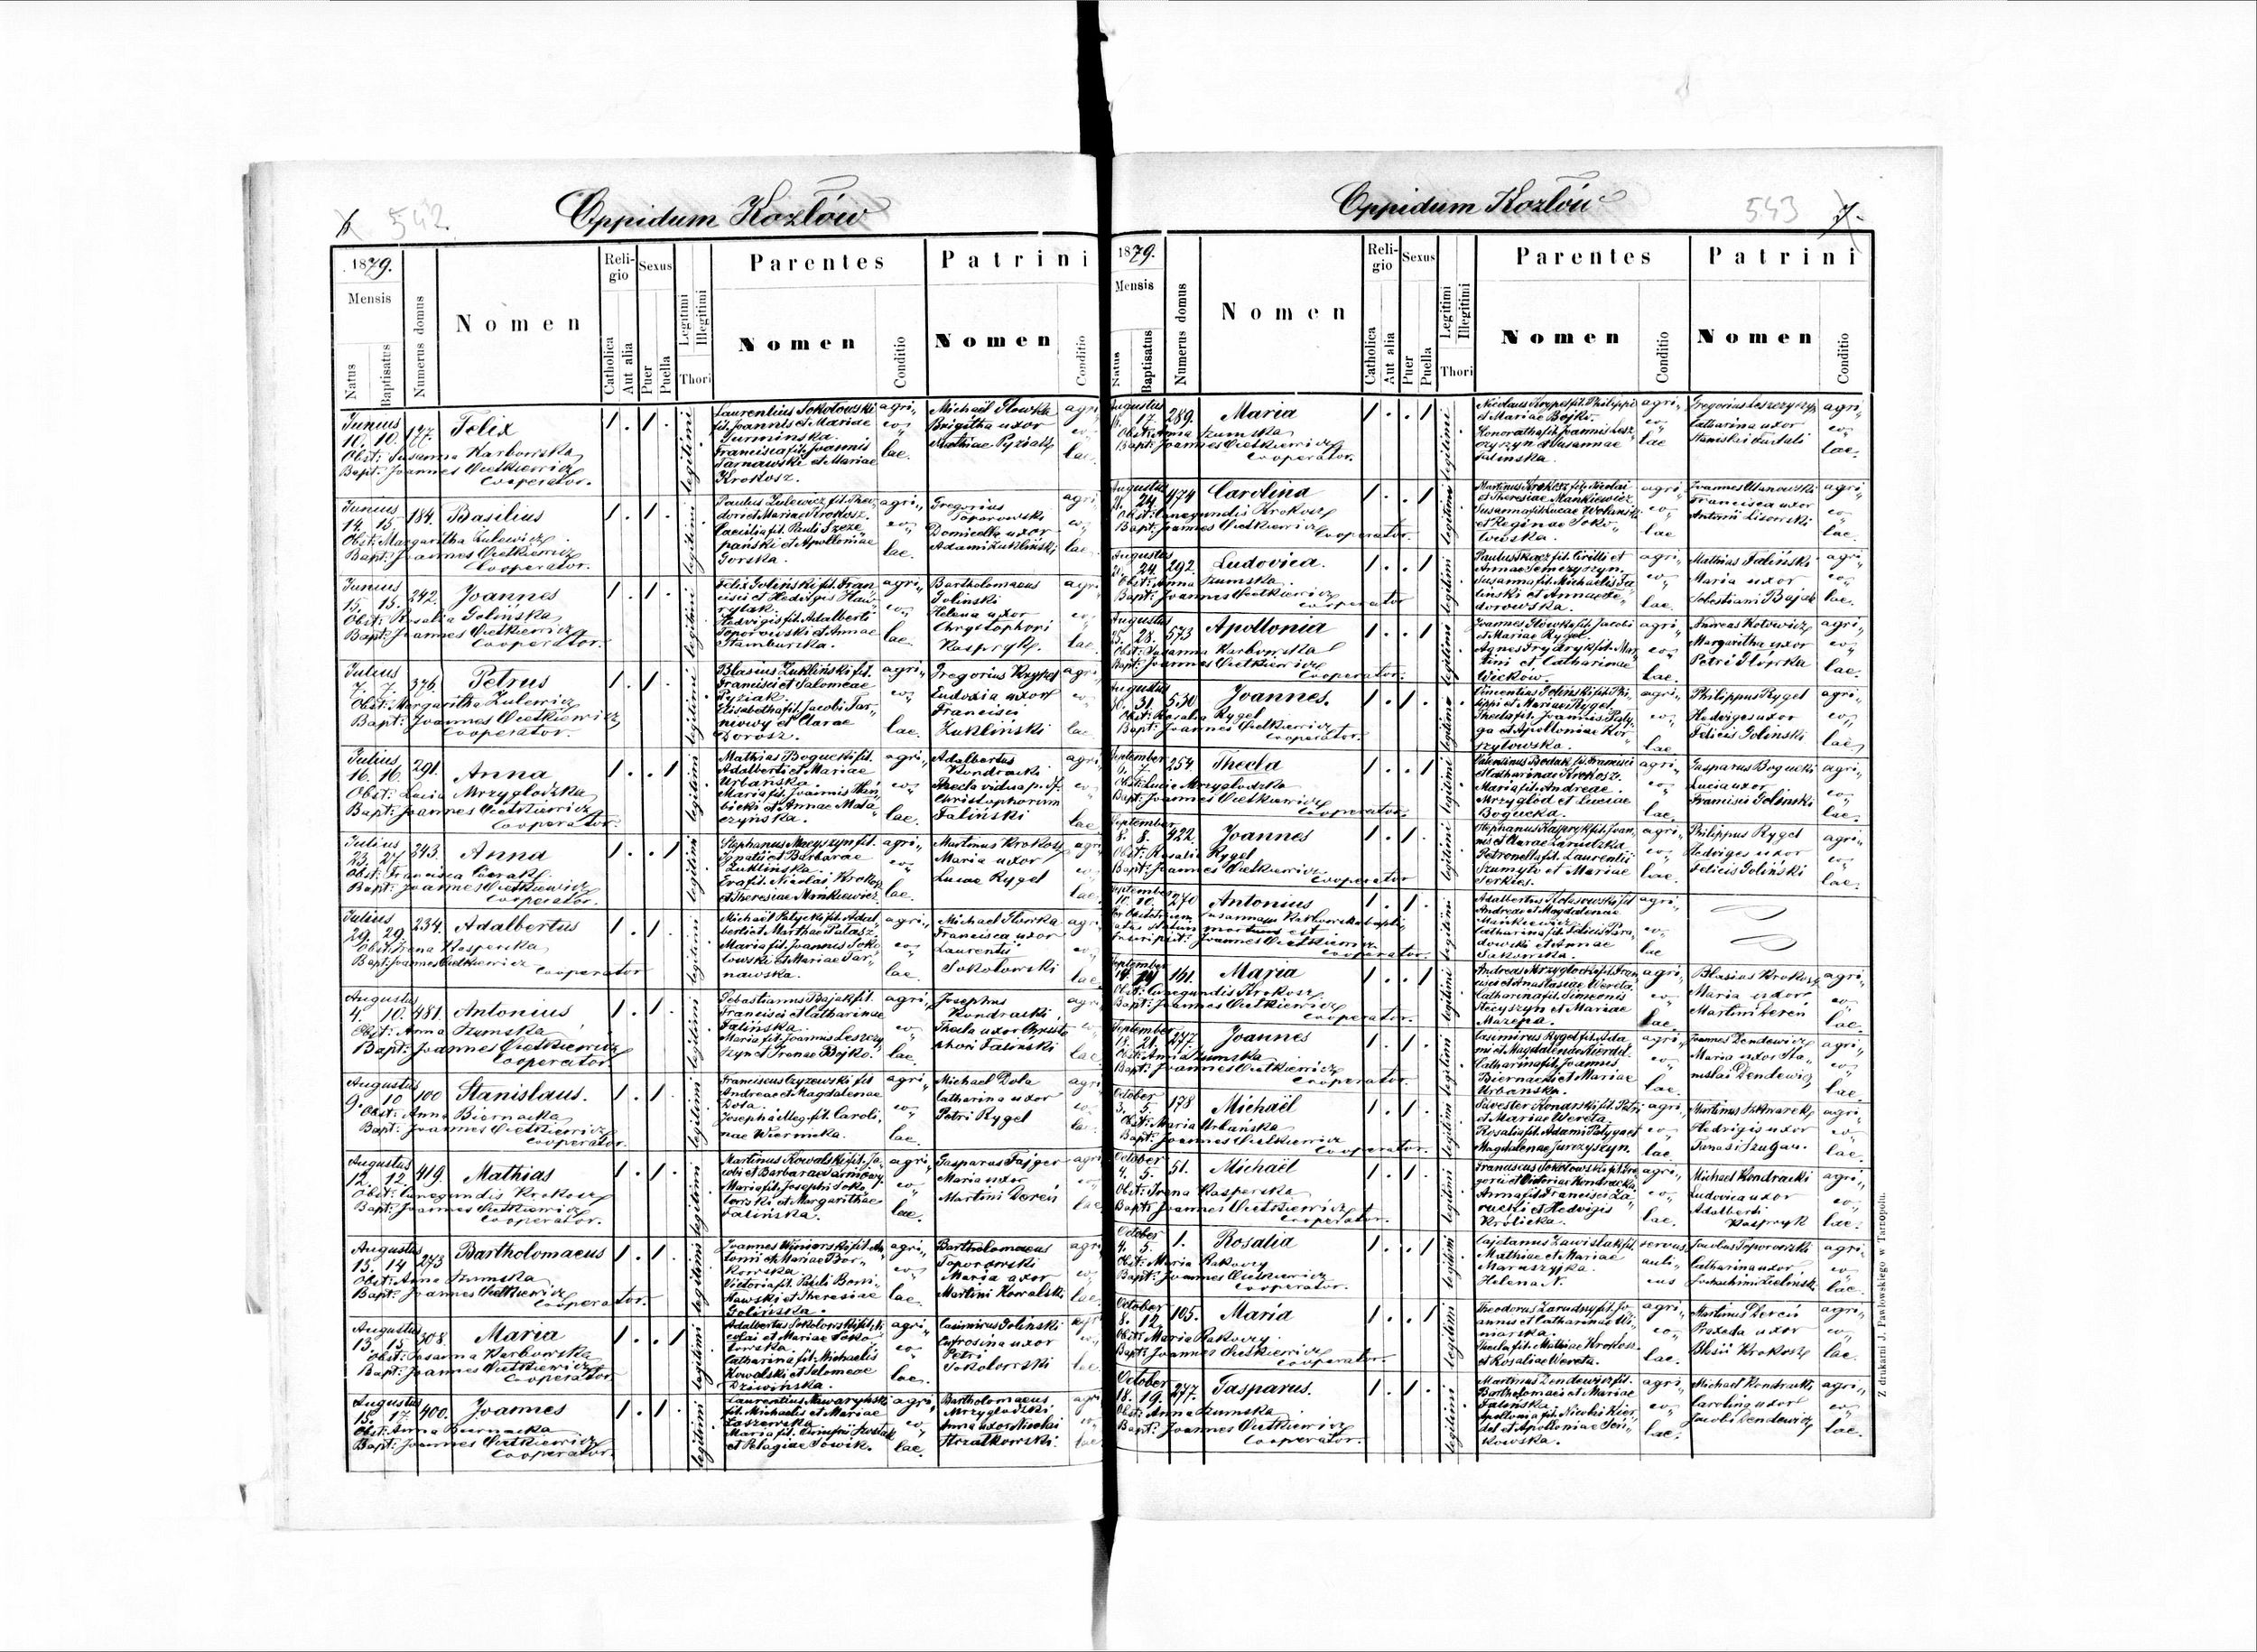 6. 542.
Oppidum Kozłów
1879.
Mensis
Natus
Baptisatus
Numerus domus
Nomen
Religio
Catholica
Aut alia
Sexus
Puer
Puella
Legitimi
Illegitimi
Thori
Parentes
Nomen
Conditio
Patrini
Nomen
Conditio
Junius
10. 10.
Felix
Obst: Susanna Karbowska
Bapt: Joannes Cietkiewicz
Cooperator.
legitimi
Laurentius Sokołowski
fil. Joannis et Mariae
Francisca fil. Joannis
Tarnawski et Mariae
Krokosz.
agri„
co„
lae.
Michaël Głowka
Brigitha uxor
Mathiae Pyziak
Junius
14. 15. 184. Basilius
Obst: Margaritha Zulewicz
Bapt: Joannes Cietkiewicz
Cooperator.
legitimi
Paulus Zulewicz fil. Theo„
dori et Mariae Krokosz.
Caecilia fil. Pauli Szcze„
pański et Apolloniae
Gorska.
agri„
co„
lae.
Gregorius
Toporowski
Domicella uxor
Adami Żukliński
Junius
15. 15. 242. Joannes
Obst: Rosalia Golińska
Bapt: Joannes Cietkiewicz
Cooperator.
legitimi
Felix Goliński fil. Fran„
cisci et Hedvigis Haw„
rylak.
Hedvigis fil. Adalberti
Toporowski et Annae
Stamburska.
agri„
co„
lae.
Bartholomaeus
Goliński
Helena uxor
Christophori
Kaspryk.
Julius
7. 7. 376. Petrus
Obst: Margaritha Zulewicz
Bapt: Joannes Cietkiewicz
Cooperator.
legitimi
Blasius Żukliński fil.
Francisci et Salomeae
Pyziak.
Elisabetha fil. Jacobi Tar„
nowy et Clarae
Dorosz.
agri„
co„
lae.
Gregorius
Eudoxia uxor
Francisci
Żukliński
Julius
16. 16. 291. Anna
Obst: Lucia Mrzygłodzka
Bapt: Joannes Cietkiewicz
Cooperator.
legitimi
Mathias Bogucki fil.
Adalberti et Mariae
Urbańska.
Maria fil. Joannis
et Annae Mała„
czyńska.
agri„
co„
lae.
Adalbertus
Kondracki
Thecla vidua p. f.
Christophorum
Faliński
Julius
23. 27. 343. Anna
Obst: Francisca
Bapt: Joannes Cietkiewicz
Cooperator.
legitimi
Stephanus Mecyszyn fil.
Ignatii et Barbarae
Żuklińska.
Eva fil. Nicolai Krokosz
et Theresiae Mankiewicz
agri„
co„
lae.
Martinus Krokosz
Maria uxor
Lucae Rygel
Julius
29. 29. 234. Adalbertus
Obst: Irena Kasperska
Bapt: Joannes Cietkiewicz
Cooperator
legitimi
Michaël Patycki fil. Adal„
berti et Marthae Palasz„
Maria fil. Joannis Soko„
łowski et Mariae Tar„
nawska.
agri„
co„
lae.
Michael Głowka
Francisca uxor
Laurentii
Sokołowski
Augustus
4. 10. 481. Antonius
Obst: Anna Szumska
Bapt: Joannes Cietkiewicz
Cooperator.
legitimi
Sebastianus Bajak fil.
Francisci et Catharinae
Falińska.
Maria fil. Joannis Leszczy„
szyn et Irenae Bojko.
agri„
co„
lae.
Josephus
Kondracki.
Thecla uxor Christo„
phori Faliński
Augustus
9. 10 100 Stanislaus.
Obst: Anna Biernacka
Bapt: Joannes Cietkiewicz
Cooperator.
legitimi
Franciscus Czyżewski fil
Andreae et Magdalenae
Dola.
Josepha illeg. fil. Caroli„
nae Wiernicka.
agri„
co„
lae.
Michael Dola
Catharina uxor
Petri Rygel
Augustus
12. 12. 419. Mathias
Obst: Cunegundis Krokosz
Bapt: Joannes Cietkiewicz
Cooperator.
legitimi
Martinus Kowalski fil. Ja„
cobi et Barbarae Tarnowy
Maria fil. Josephi Soko„
łowski et Margarithae
Falińska.
agri„
co„
lae.
Gasparus Fajger
Maria uxor
Martini Dereń
Augustus
13. 14 273 Bartholomaeus
Obst: Anna Szumska
Bapt: Joannes Cietkiewicz
Cooperator.
legitimi
Joannes Winiarski fil. An„
tonii et Mariae Bor„
kowska.
Victoria fil. Pauli Boni„
ławski et Theresiae
Golińska.
agri„
co„
lae.
Bartholomaeus
Toporowski
Maria uxor
Martini Kowalski
Augustus
13. 15. 308. Maria
Obst: Susanna Karbowska
Bapt: Joannes Cietkiewicz
Cooperator
legitimi
Adalbertus Sokołowski fil. Ni„
colai et Mariae Soko„
łowska.
Catharina fil. Michaelis
Kowalski et Salomeae
Dziwińska.
agri„
co„
lae.
Casimirus Goliński
Eufrosina uxor
Petri
Sokołowski
Augustus
15. 17. 400. Joannes
Obst: Anna Biernacka
Bapt: Joannes Cietkiewicz
Cooperator.
legitimi
Laurentius Nawaryński
fil. Michaelis et Mariae
Łaszewska
Maria fil.
et Pelagiae Sowik.
agri„
co„
lae.
Bartholomaeus
Mrzygłodzki
Anna uxor Nicolai
Strzałkowski
Oppidum Kozłów
543 7.
1879.
Mensis
Natus
Baptisatus
Numerus domus
Nomen
Religio
Catholica
Aut alia
Sexus
Puer
Puella
Legitimi
Illegitimi
Thori
Parentes
Nomen
Conditio
Patrini
Nomen
Conditio
Augustus
16. 17. 289. Maria
Obst: Anna Szumska
Bapt: Joannes Cietkiewicz
Cooperator.
legitimi
Nicolaus fil. Philippi
et Mariae Bojko.
Honoratha fil. Joannis Lesz„
czyszyn et Susannae
Falińska.
agri„
co„
lae
Gregorius Leszczyszyn
Catharina uxor
Stanislai
agri„
co„
lae.
Augustus
21. 24. 474 Carolina
Obst: Cunegundis Krokosz
Bapt: Joannes Cietkiewicz
Cooperator.
legitimi
Martinus Krokosz fil. Nicolai
et Theresiae Mankiewicz
Susanna fil. Lucae Wolański
et Reginae Soko„
łowska.
agri„
co„
lae
Joannes
Francisca uxor
Antonii Lisowski
agri„
co„
lae.
Augustus
24. 292. Ludovica.
Obst: Anna Szumska.
Bapt: Joannes Cietkiewicz
Cooperator
legitimi
Paulus Tkacz fil. Cirilli et
Annae Semczyszyn.
Susanna fil. Michaelis Fa„
liński et Annae Fe„
dorowska.
agri„
co„
lae.
Mathias Faliński
Maria uxor
Sebastiani Bajak
agri„
co„
lae.
Augustus
25. 28. 573 Apollonia
Obst: Susanna Karbowska
Bapt: Joannes Cietkiewicz
Cooperator.
legitimi
Joannes Głowka fil. Jacobi
et Mariae Rygel.
Agnes Frydryk fil. Mar„
tini et Catharinae
Wickow.
agri„
co„
lae.
Andreas Kotowicz
Margaritha uxor
Petri Głowka
agri„
co„
lae.
Augustus
30. 31. 530 Joannes.
Obst: Rosalia Rygel
Bapt: Joannes Cietkiewicz
Cooperator.
legitimi
Vincentius Goliński fil. Phi„
lippi et Mariae Rygel
Thecla fil. Joannis Paty„
ga et Apolloniae Kor„
żyłowska.
agri„
co„
lae
Philippus Rygel
Hedviges uxor
Felicis Goliński
agri„
co„
lae
September
254 Thecla
Obst: Lucia Mrzygłodzka
Bapt: Joannes Cietkiewicz
Cooperator.
legitimi
Valentinus Bodak fil. Francisci
et Catharinae Krokosz.
Maria fil. Andreae
Mrzygłód et Luciae
Bogucka.
agri„
co„
lae.
Gasparus Bogucki
Lucia uxor
Francisci Goliński
agri„
co„
lae.
September
8. 8. 422. Joannes
Obst: Rosalia Rygel
Bapt: Joannes Cietkiewicz
Cooperator
legitimi
Stephanus Kaspryk fil. Joan„
nis et Clarae Zarudzka
Petronella fil. Laurentii
Szumyło et Mariae
Serkies.
agri„
co„
lae.
Philippus Rygel
Hedviges uxor
Felicis Goliński
agri„
co„
lae.
September
10. 10. 270 Antonius
Per Obstetricem Susannam Karbowska bapti„
atus statim mortuus est
Inscripsit: Joannes Cietkiewicz
Cooperator.
legitimi
Adalbertus Kołosowski fil
Andreae et Magdalenae
Mankiewicz
Catharina fil. Felicis Para„
dowski et Annae
Sakowska.
agri„
co„
lae
September
14. 14. 161. Maria
Obst: Cunegundis Krokosz
Bapt: Joannes Cietkiewicz
Cooperator.
legitimi
Andreas Mrzygłocki fil. Fran„
cisci et Anastasiae Wereta.
Catharina fil. Simeonis
Stecyszyn et Mariae
Mazepa.
agri„
co„
lae.
Blasius Krokosz
Maria uxor
Martini Dereń
agri„
co„
lae.
September
19. 21. 277. Joannes
Obst: Anna Szumska
Bapt: Joannes Cietkiewicz
Cooperator.
legitimi
Casimirus Rygel fil. Ada„
mi et Magdalenae Kierdel.
Catharina fil. Joannis
Biernacki et Mariae
Urbańska.
agri„
co„
lae.
Joannes Dendewicz
Maria uxor Sta„
nislai Dendewicz
agri„
co„
lae.
October
3. 5. 178 Michaël
Obst: Maria Urbańska
Bapt: Joannes Cietkiewicz
Cooperator.
legitimi
Silvester Konarski fil. Petri
et Mariae Wereta.
Rosalia fil. Adami Patyga et
Magdalenae Jurczyszyn.
agri„
co„
lae
Martinus Skwarek
Hedvigis uxor
Tanasi Szulgan.
agri„
co„
lae.
October
4. 5. 51. Michaël
Obst: Irena Kasperska
Bapt: Joannes Cietkiewicz
Cooperator.
legitimi
Franciscus Sokołowski fil. Gre„
gorii et Victoriae Kondracka
Anna fil. Francisci Za„
rucki et Hedvigis
Królicka.
agri„
co„
lae.
Michael Kondracki
Ludovica uxor
Adalberti
Kaspryk
agri„
co„
lae.
October
4. 5. 1. Rosalia
Obst: Maria Rakoczy
Bapt: Joannes Cietkiewicz
Cooperator.
legitimi
Cajetanus Zawislak fil.
Mathiae et Mariae
Maruszyjka.
Helena N.
servus
auli„
cus
Jacobus Toporowski
Catharina uxor
Joachimi Zieliński
agri„
co„
lae.
October
8. 12. 105. Maria
Obst: Maria Rakoczy.
Bapt: Joannes Cietkiewicz
Cooperator.
legitimi
Theodorus Zarudny fil. Jo„
annis et Catharinae Wi„
niarska.
Thecla fil. Mathiae Krokosz
et Rosaliae Wereta.
agri„
co„
lae.
Martinus Dereń
Praxeda uxor
Blasii Krokosz
agri„
co„
lae.
October
18. 19. 277. Gasparus.
Obst: Anna Szumska.
Bapt: Joannes Cietkiewicz
Cooperator.
legitimi
Martinus Dendewicz fil.
Bartholomaei et Mariae
Falińska.
Apollonia fil. Nicolai Kier„
del et Apolloniae Sen„
kowska.
agri„
co„
lae.
Michael Kondracki
Carolina uxor
Jacobi Dendewicz
agri„
co„
lae.
Z drukarni J. Pawłowskiego w Tarnopolu.